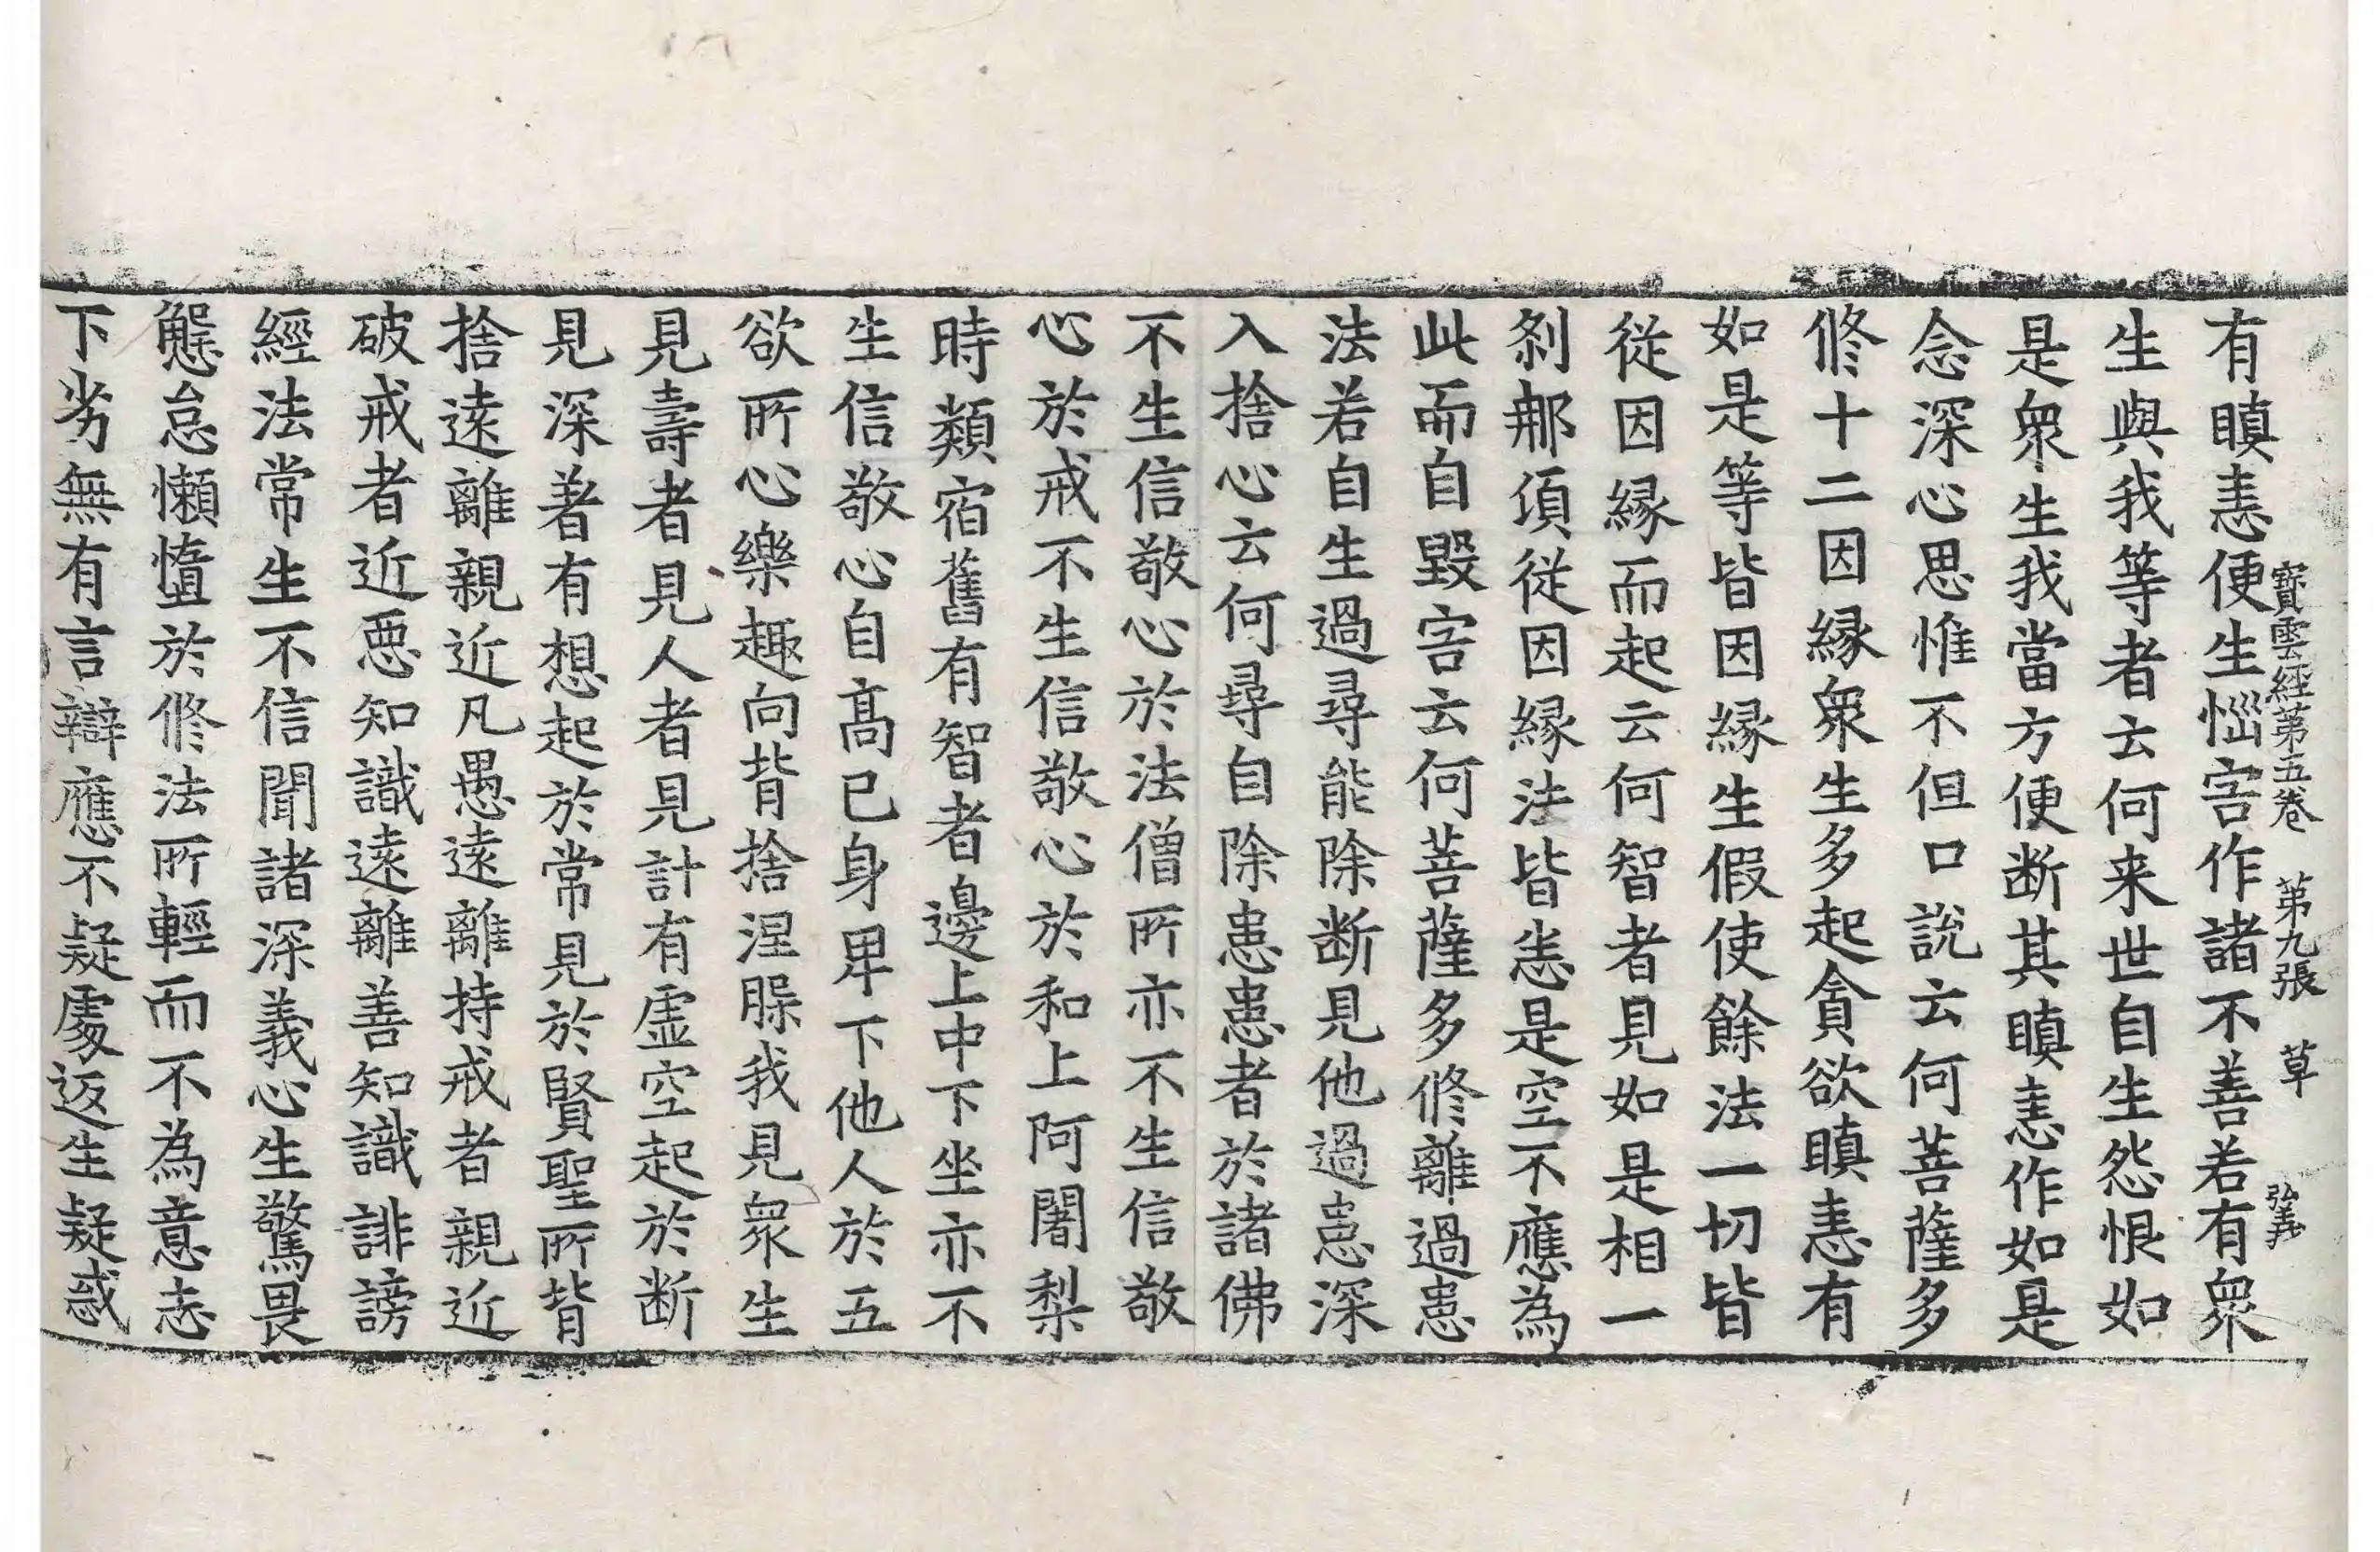 寶雲經第五卷　第九張　草　弘義
有瞋恚便生惱害作諸不善若有衆
生與我等者云何来世自生怨恨如
是衆生我當方便断其瞋恚作如是
念深心思惟不但口說云何菩薩多
修十二因緣衆生多起貪欲瞋恚有
如是等皆因緣生假使餘法一切皆
從因緣而起云何智者見如是相一
刹那頃從因緣法皆悉是空不應為
此而自毀害云何菩薩多修離過患
法若自生過尋能除断見他過患深
入捨心云何尋自除患患者於諸佛
不生信敬心於法僧所亦不生信敬
心於戒不生信敬心於和上阿闍梨
時類宿舊有智者邊上中下坐亦不
生信敬心自髙已身卑下他人於五
欲所心樂趣向背捨涅脲我見衆生
見壽者見人者見計有虛空起於断
見深著有想起於常見於賢聖所背
捨遠離親近凡愚遠離持戒者親近
破戒者近惡知識遠離善知識誹謗
經法常生不信聞諸深義心生驚畏
懈怠懶憜於修法所輕而不為意志
下劣無有言辯應不疑處返生疑惑